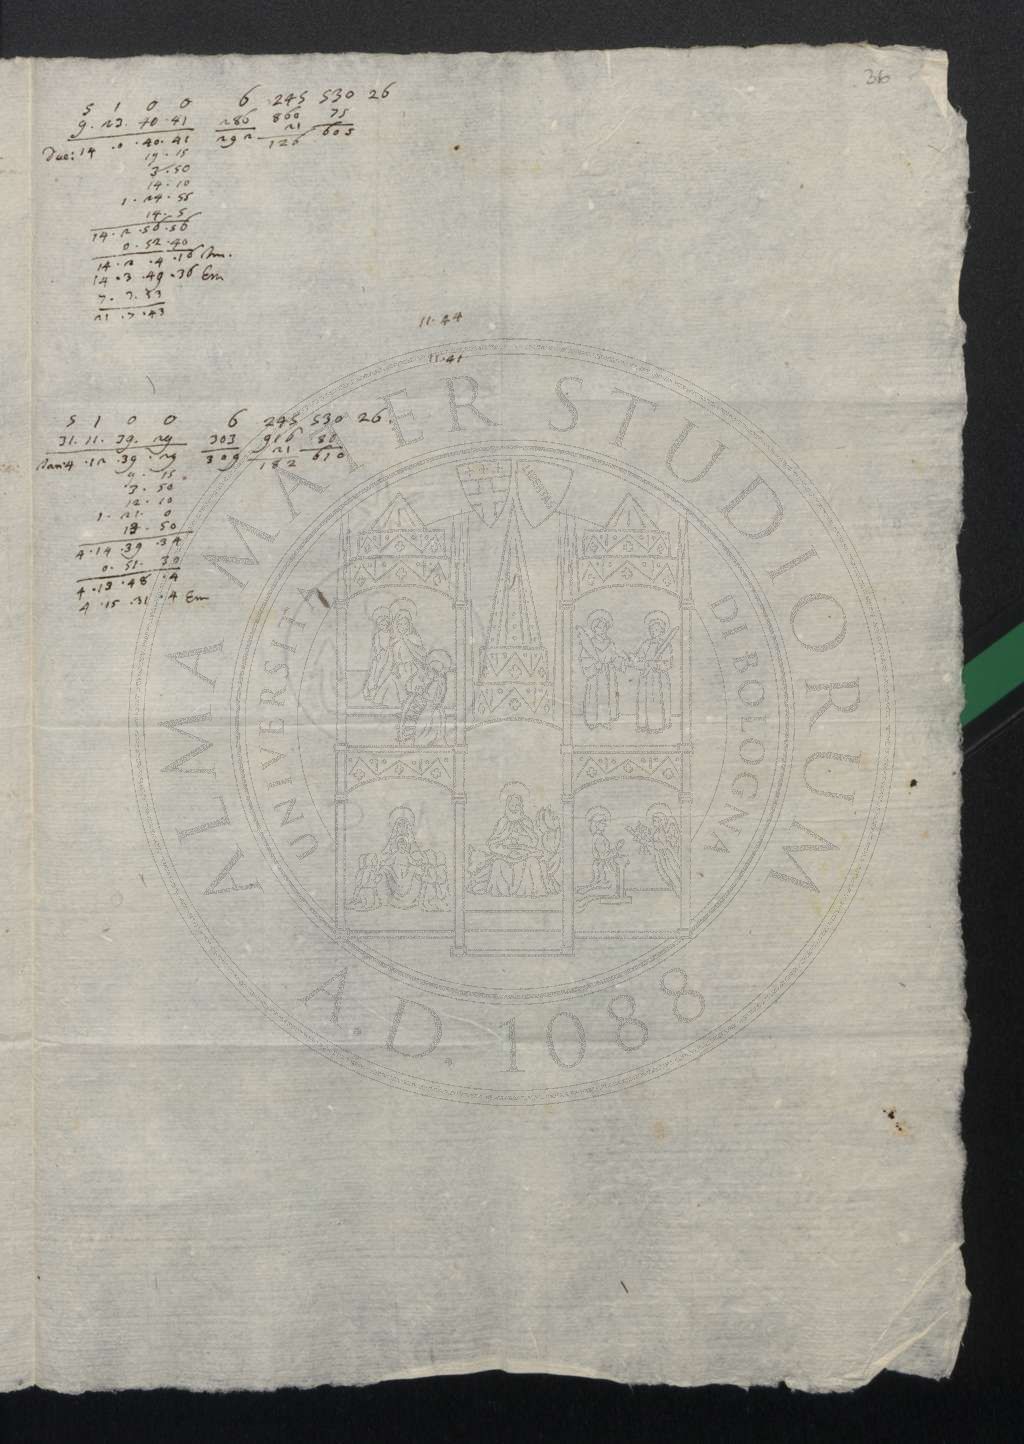 36
5 1 0 0 6 245 530 26
9. 23. 40. 41 286 860 75
21
14 .0 .40. 41 292 126 605
19. 15
3. 50
14. 10
1. 24. 55
14. 5
14. 2. 56. 56
0. 52. 40
14. 2. 4. 16
14. 3. 49. 36 Em
7. 7. 53
21. 7. 43
11. 44
11. 41
5 1 0 0 6 245 530 26.
31. 11. 39. 29 303 916 80
21
4. 12. 39. 29 309 182 610
9. 15
3. 50
12. 10
1. 21. 0
19. 50
4. 14. 39. 34
0. 51. 30
4. 13. 48. 4
4. 15. 31. 4 Em
ALMA MATER STUDIORUM
UNIVERSITÀ DI BOLOGNA
LIBERTAS
A.D. 1088